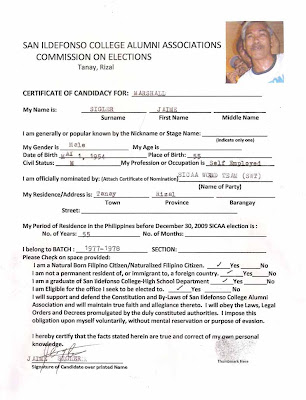 SAN ILDEFONSO COLLEGE ALUMNI ASSOCIATIONS
COMMISSION ON ELECTIONS
Tanay, Rizal
CERTIFICATE OF CANDIDACY FOR: MARSHALL
My Name is: SIGLER JAIME
Surname First Name Middle Name
I am generally or popular known by the Nickname or Stage Name:
(Indicate only one)
My Gender is Male My Age is
Date of Birth MAY 1, 1954 Place of Birth: 55
Civil Status: M My Profession or Occupation is Self Employed
I am officially nominated by: (Attach Certificate of Nomination) SICAA WORD TEAM (SWT)
(Name of Party)
My Residence/Address is: Tanay Rizal
Town Province Barangay
Street:
My Period of Residence in the Philippines before December 30, 2009 SICAA election is :
No. of Years: 55 No. of Months:
I belong to BATCH : 1977-1978 SECTION:
Please Check on space provided:
I am a Natural Born Filipino Citizen/Naturalised Filipino Citizen. ✓ Yes No
I am not a permanent resident of, or immigrant to, a foreign country. ✓ Yes No
I am a graduate of San Ildefonso College-High School Department ✓ Yes No
I am Eligible for the office I seek to be elected to. ✓ Yes No
I will support and defend the Constitution and By-Laws of San Ildefonso College Alumni
Association and will maintain true faith and allegiance thereto. I will obey the Laws, Legal
Orders and Decrees promulgated by the duly constituted authorities. I impose this
obligation upon myself voluntarily, without mental reservation or purpose of evasion.
I hereby certify that the facts stated herein are true and correct of my own personal
knowledge.
JAIME SIGLER
Signature of Candidate over printed Name
Thumbmark Here